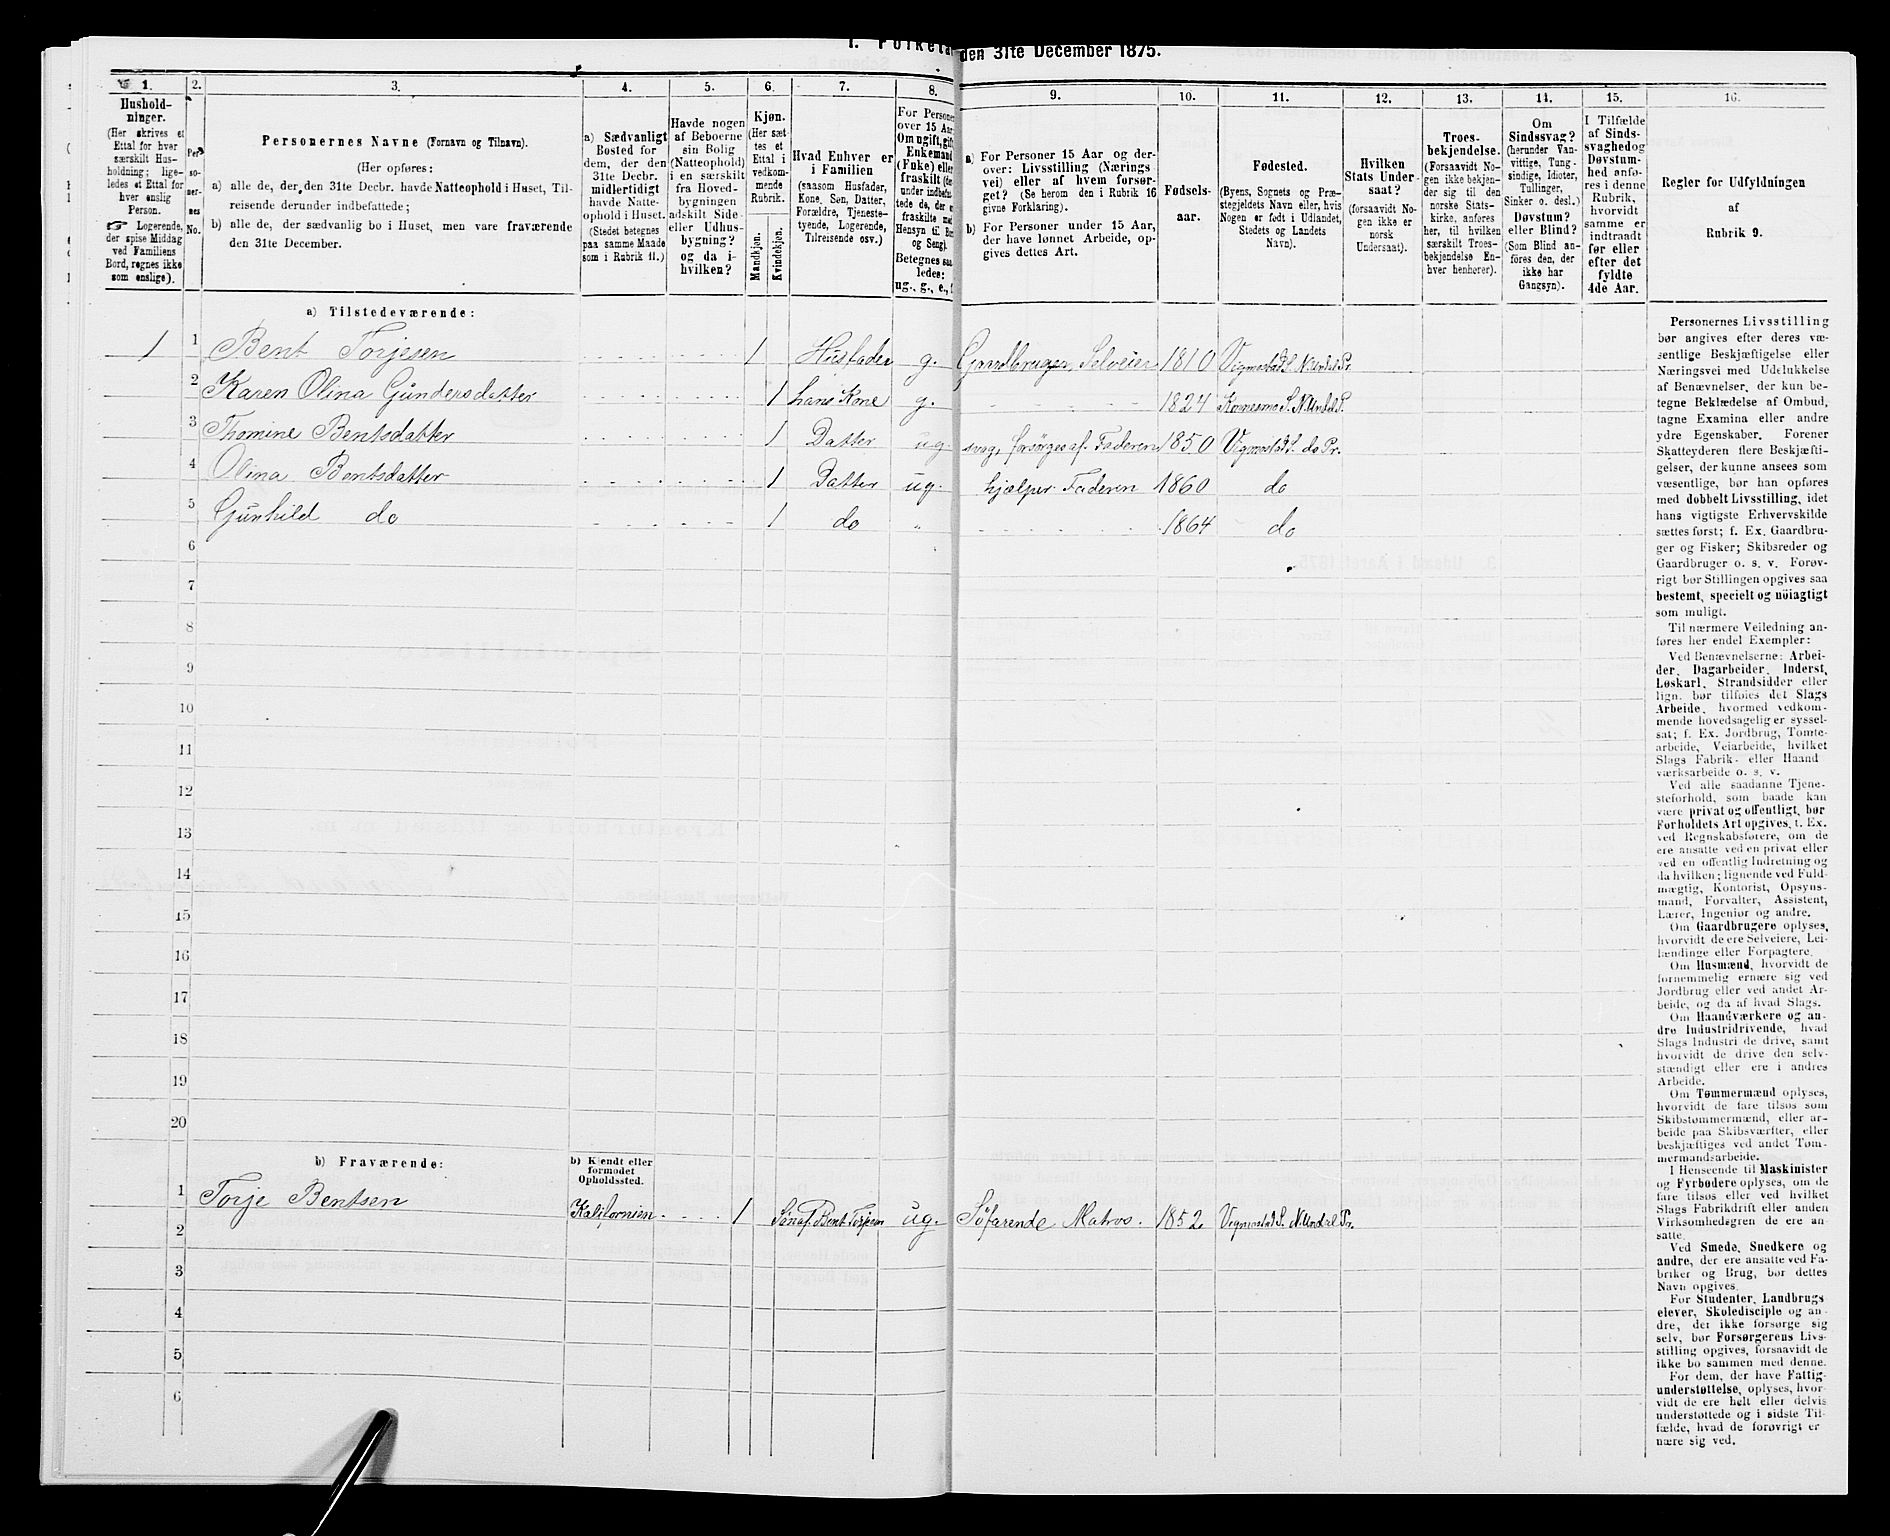 1. Folketæ
den 31te December 1875.
1. 2. 3. 4. 5. 6. 7. 8. 9. 10. 11. 12. 13. 14. 15. 16.
Hushold-
ninger.
(Her skrives et
Ettal for hver
særskilt Hus-
holdning; lige-
ledes et Ettal for
hver enslig
Person.
☞ Logerende,
der spise Middag
ved Familiens
Bord, regnes ikke
som enslige).
Per
so-
ner-
nes
No.
Personernes Navne (Fornavn og Tilnavn).
(Her opføres:
a) alle de, der den 31te Decbr. havde Natteophold i Huset, Til-
reisende derunder indbefattede;
b) alle de, der sædvanlig bo i Huset, men vare fraværende
den 31te December.
a) Sædvanligt
Bosted for
dem, der den
31te Decbr.
midlertidigt
havde Natte-
ophold i Huset.
(Stedet betegnes
paa samme Maade
som i Rubrik 11.)
Havde nogen
af Beboerne
sin Bolig
(Natteophold)
i en særskilt
fra Hoved-
bygningen
adskilt Side-
eller Udhus-
bygning?
og da i-
hvilken?
Kjøn.
(Her sæt-
tes et
Ettal i
vedkom-
mende
Rubrik.
Mandkjøn.
Kvindekjøn.
Hvad Enhver er
i Familien
(saasom Husfader,
Kone, Søn, Datter,
Forældre, Tjeneste-
tyende, Logerende,
Tilreisende osv.)
For Persone
over 15 Aar
Om ugift, gift
Enkemand
(Enke) eller
fraskilt (der
under indbefat-
tede de, der e
fraskilte med
Hensyn til Bo
og Seng).
Betegnes saa
ledes:
ug., g., e., f
a) For Personer 15 Aar og der-
over: Livsstilling (Nærings
vei) eller af hvem forsør-
get? (Se herom den i Rubrik 16
givne Forklaring).
b) For Personer under 15 Aar,
der have lønnet Arbeide, op-
gives dettes Art.
Fødsels-
aar.
Fødested.
(Byens, Sognets og Præ-
stegjeldets Navn eller, hvis
Nogen er født i Udlandet,
Stedets og Landets
Navn).
Hvilken
Stats Under-
saat?
(forsaavidt No-
gen ikke er
norsk
Undersaat).
Troes-
bekjendelse.
(Forsaavidt No-
gen ikke bekjen-
der sig til den
norske Stats-
kirke, anføres
her, til hvilken
særskilt Troes-
bekjendelse En-
hver henhører).
Om
Sindssvag?
(herunder Van-
vittige, Tung-
sindige, Idioter,
Tullinger,
Sinker o. desl.)
Døvstum?
eller Blind?
(Som Blind an-
føres den, der
ikke har
Gangsyn).
I Tilfælde
af Sinds-
svaghed og
Døvstum-
hed anfø-
res i denne
Rubrik,
hvorvidt
samme er
indtraadt
før eller
efter det
fyldte
4de Aar.
Regler for Udfyldningen
af
Rubrik 9.
a) Tilstedeværende:
1 1 Bent Torjesen 1 Husfader g. Gaardbruger, Selveier 1810 Vigmostad S. N. Undal Pr.
2 Karen Olina Gundersdatter 1 hans Kone g. 1824 S. N. Undal P.
3 Thomine Bentsdatter 1 Datter ug. svag, forsørges af Faderen 1850 Vigmostad S. do Pr.
4 Olina Bentsdatter 1 Datter ug. hjælper Faderen 1860 do
5 Gunhild do 1 do „ 1864 do
6
7
8
9
10
11
12
13
14
15
16
17
18
19
20
b) Fraværende:
b) Kjendt eller
formodet
Opholdssted.
1 Torje Bentsen Kalifornien 1 Søn af Bent Torjesen ug. Söfarende Matros. 1852 Vigmostad S. N. Undal Pr.
2
3
4
5
6
Personernes Livsstilling
bør angives efter deres væ-
sentlige Beskjæftigelse eller
Næringsvei med Udelukkelse
af Benævnelser, der kun be-
tegne Beklædelse af Ombud,
tagne Examina eller andre
ydre Egenskaber. Forener
Skatteyderen flere Beskjæfti-
gelser, der kunne ansees som
væsentlige, bør han opføres
med dobbelt Livsstilling, idet
hans vigtigste Erhvervskilde
sættes først; f. Ex. Gaardbru-
ger og Fisker; Skibsreder og
Gaardbruger o. s. v. Forøv-
rigt bør Stillingen opgives saa
bestemt, specielt og nöiagtigt
som muligt.
Til nærmere Veiledning an-
føres her endel Exempler:
Ved Benævnelserne: Arbei-
der, Dagarbeider, Inderst,
Løskarl, Strandsidder eller
lign. bør tilføies det Slags
Arbeide, hvormed vedkom-
mende hovedsagelig er syssel-
sat; f. Ex. Jordbrug, Tomte-
arbeide, Veiarbeide, hvilket
Slags Fabrik- eller Haand
værksarbeide o. s. v.
Ved alle saadanne Tjene-
steforhold, som baade kan
være privat og offentligt, bør
Forholdets Art opgives, t. Ex.
ved Regnskabsførere, om de
ere ansatte ved en privat eller
ved en offentlig Indretning og
da hvilken; lignende ved Fuld-
mægtig, Kontorist, Opsyns-
mand, Forvalter, Assistent,
Lærer, Ingeniør og andre.
Om Gaardbrugere oplyses,
hvorvidt de ere Selveiere, Lei-
lændinge eller Forpagtere.
Om Husmænd, hvorvidt de
fornemmelig ernære sig ved
Jordbrug eller ved andet Ar-
beide, og da af hvad Slags.
Om Haandværkere og an-
dre Industridrivende, hvad
Slags Industri de drive, samt
hvorvidt de drive den selv-
stændigt eller ere i andres
Arbeide.
Om Tømmermænd oplyses,
hvorvidt de fare tilsøs som
Skibstømmermænd, eller ar-
beide paa Skibsværfter, eller
beskjæftiges ved andet Tøm-
mermandsarbeide.
I Henseende til Maskinister
og Fyrbødere oplyses, om de
fare tilsøs eller ved hvilket
Slags Fabrikdrift eller anden
Virksomhedsgren de ere an-
satte.
Ved Smede, Snedkere og
andre, der ere ansatte ved Fa-
briker og Brug, bør dettes
Navn opgives.
For Studenter, Landbrugs
elever, Skoledisciple og an-
dre, der ikke forsørge sig
selv, bør Forsørgerens Livs-
stilling opgives, forsaavidt de
ikke bo sammen med denne.
For dem, der have Fattig-
understøttelse, oplyses, hvor-
vidt de ere helt eller delvis
understøttede og i sidste Til-
fælde, hvad de forøvrigt er-
nære sig ved.